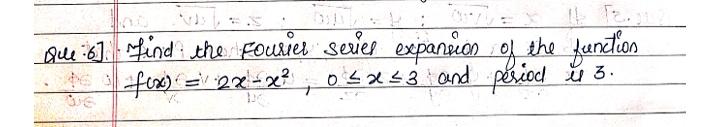 Que :6]. Find the Fourier series expansion of the function
f(x) = 2x - x², 0 ≤ x ≤ 3 and period is 3.